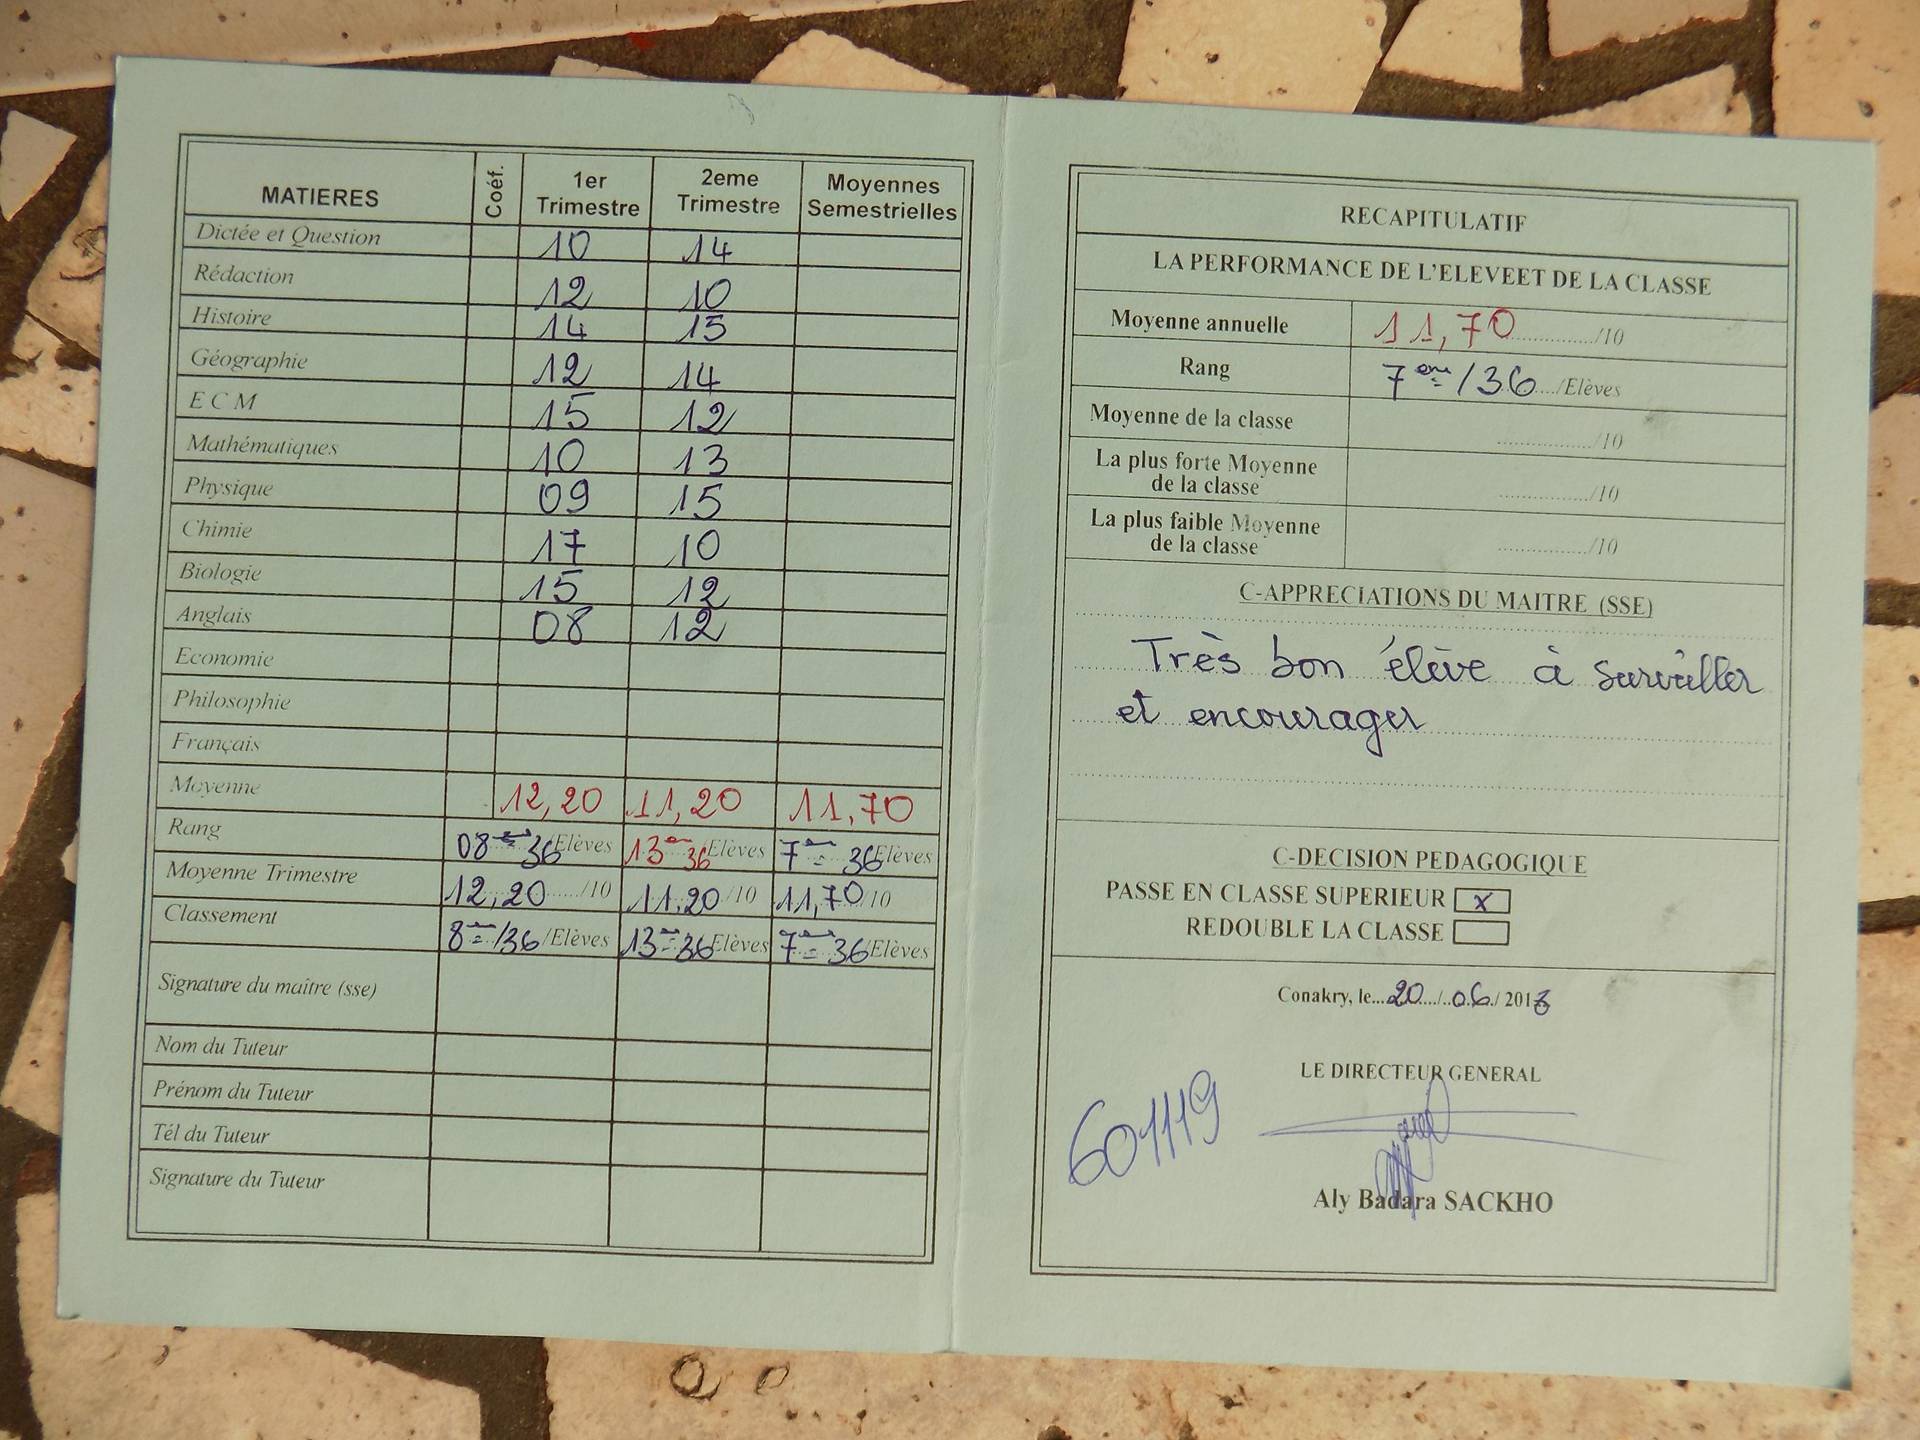 MATIERES Coéf. 1er Trimestre 2eme Trimestre Moyennes Semestrielles
Dictée et Question 10 14
Rédaction 12 10
Histoire 14 15
Géographie 12 14
E C M 15 12
Mathématiques 10 13
Physique 09 15
Chimie 17 10
Biologie 15 12
Anglais 08 12
Economie
Philosophie
Français
Moyenne 12,20 11,20 11,70
Rang 08 36/Elèves 13 36 Elèves 7 36 Elèves
Moyenne Trimestre 12,20 /10 11,20 /10 11,70 /10
Classement 8 /36 /Elèves 13 36 Elèves 7 36 /Elèves
Signature du maître (sse)
Nom du Tuteur
Prénom du Tuteur
Tél du Tuteur
Signature du Tuteur
RECAPITULATIF
LA PERFORMANCE DE L'ELEVEET DE LA CLASSE
Moyenne annuelle 11,70 /10
Rang 7 /36 /Elèves
Moyenne de la classe /10
La plus forte Moyenne de la classe /10
La plus faible Moyenne de la classe /10
C-APPRECIATIONS DU MAITRE (SSE)
Très bon élève à surveiller
et encourager
C-DECISION PEDAGOGIQUE
PASSE EN CLASSE SUPERIEUR x
REDOUBLE LA CLASSE
Conakry, le 20 / 06 / 201
LE DIRECTEUR GENERAL
601119
Aly Badara SACKHO